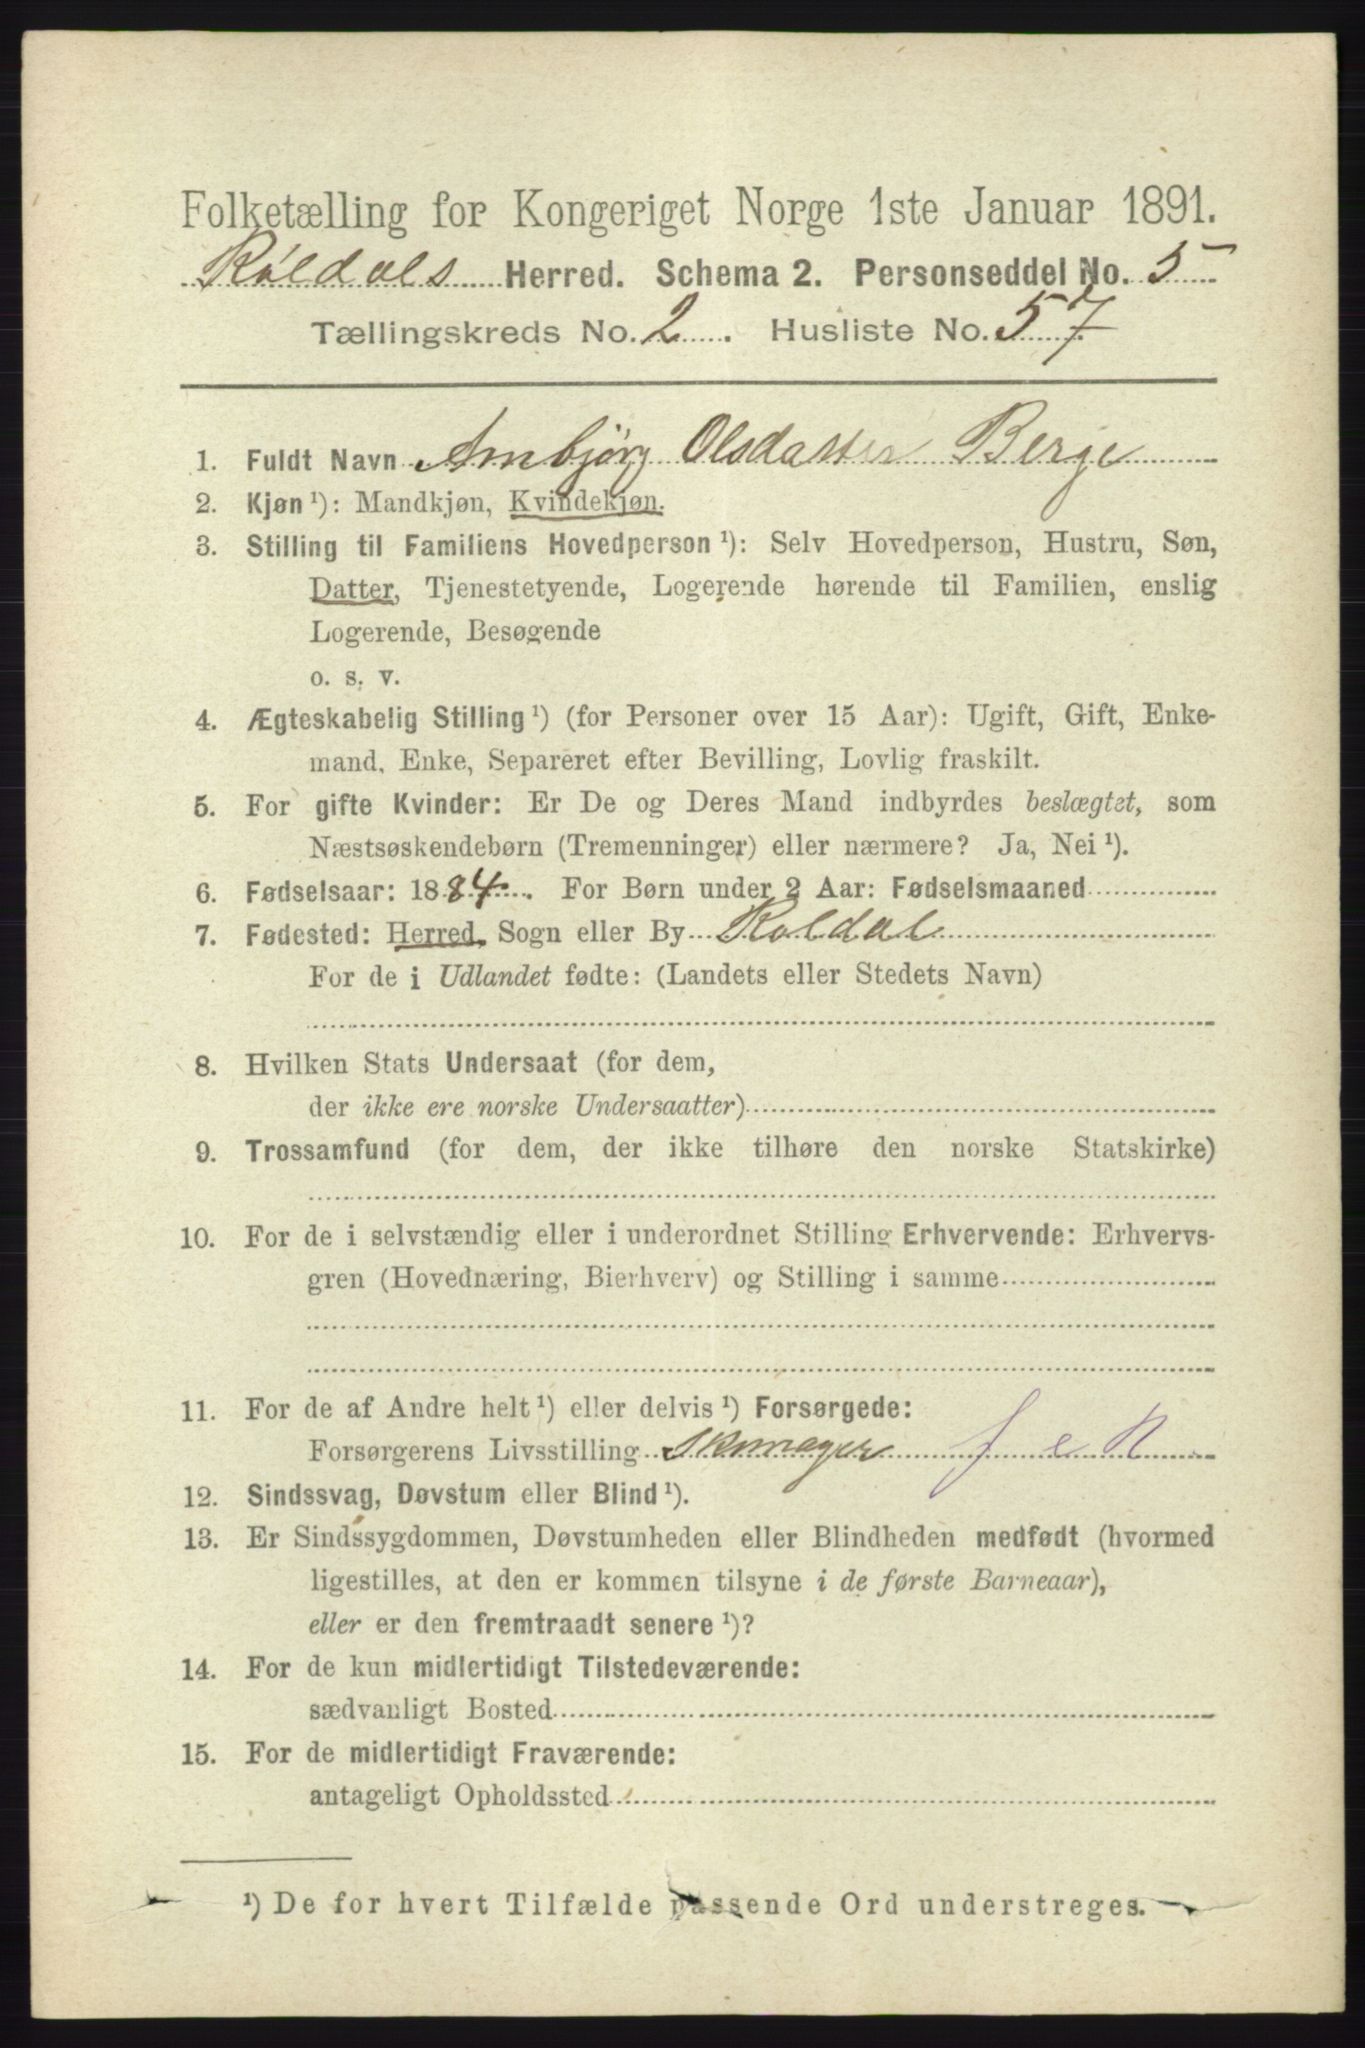 Folketælling for Kongeriget Norge 1ste Januar 1891.
Røldals Herred. Schema 2. Personseddel No. 5
Tællingskreds No. 2. Husliste No. 57
1. Fuldt Navn Ambjørg Olsdatter Berge
2. Kjøn ¹): Mandkjøn, Kvindekjøn.
3. Stilling til Familiens Hovedperson ¹): Selv Hovedperson, Hustru, Søn,
Datter, Tjenestetyende, Logerende hørende til Familien, enslig
Logerende, Besøgende
o. s. v.
4. Ægteskabelig Stilling ¹) (for Personer over 15 Aar): Ugift, Gift, Enke-
mand, Enke, Separeret efter Bevilling, Lovlig fraskilt.
5. For gifte Kvinder: Er De og Deres Mand indbyrdes beslægtet, som
Næstsøskendebørn (Tremenninger) eller nærmere? Ja, Nei ¹).
6. Fødselsaar: 1884. For Børn under 2 Aar: Fødselsmaaned
7. Fødested: Herred, Sogn eller By Roldal
For de i Udlandet fødte: (Landets eller Stedets Navn)
8. Hvilken Stats Undersaat (for dem,
der ikke ere norske Undersaatter)
9. Trossamfund (for dem, der ikke tilhøre den norske Statskirke)
10. For de i selvstændig eller i underordnet Stilling Erhvervende: Erhvervs-
gren (Hovednæring, Bierhverv) og Stilling i samme
11. For de af Andre helt ¹) eller delvis ¹) Forsørgede:
Forsørgerens Livsstilling Skomager
12. Sindssvag, Døvstum eller Blind ¹).
13. Er Sindssygdommen, Døvstumheden eller Blindheden medfødt (hvormed
ligestilles, at den er kommen tilsyne i de første Barneaar),
eller er den fremtraadt senere ¹)?
14. For de kun midlertidigt Tilstedeværende:
sædvanligt Bosted
15. For de midlertidigt Fraværende:
antageligt Opholdssted
¹) De for hvert Tilfælde passende Ord understreges.